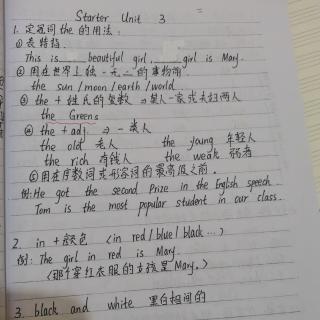 Starter Unit 3
1. 定冠词 the 的用法:
① 表特指.
This is ___ beautiful girl, ___ girl is Mary.
② 用在世界上独一无二的事物前.
the sun / moon / earth / world
③ the + 姓氏的复数 ⇒ 某人一家或夫妇两人
the Greens
④ the + adj. ⇒ 一类人
the old 老人 the young 年轻人
the rich 有钱人 the weak 弱者
⑤ 用在序数词或形容词的最高级之前.
例: He got the second prize in the English speech
Tom is the most popular student in our class.
2. in + 颜色 (in red / blue / black ...)
例: The girl in red is Mary.
(那个穿红衣服的女孩是Mary.)
3. black and white 黑白相间的